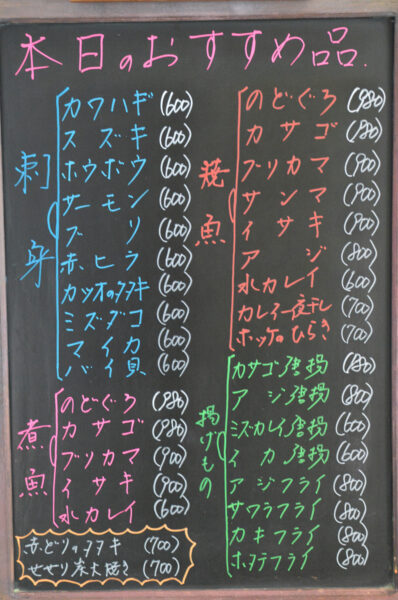 本日のおすすめ品.
刺身
カワハギ (600)
スズキ (600)
ホウボウ (600)
サーモン (600)
ブリ (600)
赤ヒラ (600)
カツオのタタキ (600)
ミズダコ (600)
マイカ (600)
バイ貝 (600)
煮魚
のどぐろ (980)
カサゴ (980)
ブリカマ (900)
イサキ (900)
水カレイ (600)
赤どりのタタキ (700)
せせり炭火焼き (700)
焼魚
のどぐろ (980)
カサゴ (980)
ブリカマ (900)
サンマ (900)
イサキ (900)
アジ (800)
水カレイ (600)
カレイ一夜干し (700)
ホッケのひらき (700)
揚げもの
カサゴ唐揚 (980)
アジ唐揚 (800)
ミズカレイ唐揚 (600)
イカ唐揚 (600)
アジフライ (800)
サワラフライ (800)
カキフライ (800)
ホタテフライ (800)